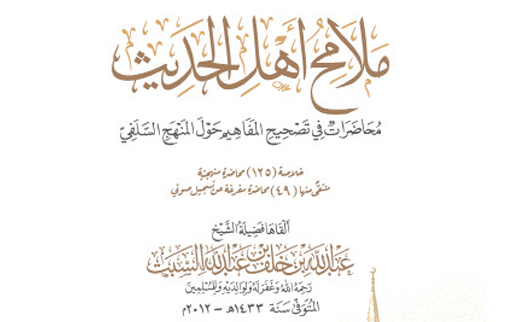 ملامح أهل الحديث
محاضرات في تصحيح المفاهيم حول المنهج السلفي
خلاصة (١٢٥) محاضرة منهجية
منتقى منها (٤٩) محاضرة مفرغة عن تسجيل صوتي
ألقاها فضيلة الشيخ
عبد الله بن خلف بن عبد الله السبت
رحمه الله وغفر له ولوالديه وللمسلمين
المتوفى سنة ١٤٣٣هـ - ٢٠١٢م